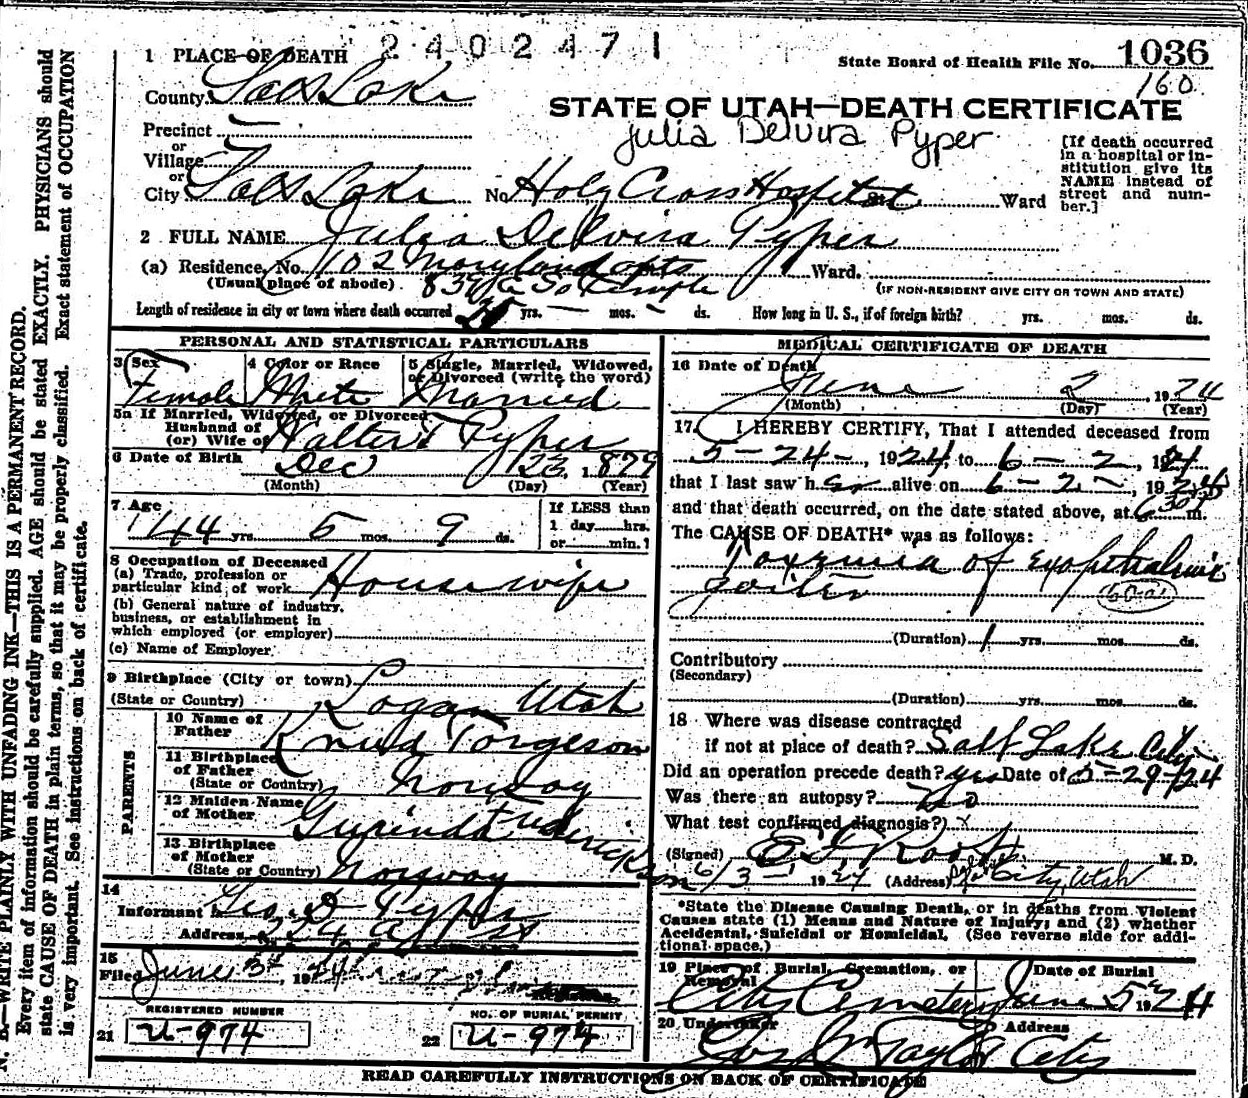 2402471
State Board of Health File No. 1036
160
1 PLACE OF DEATH
County Salt Lake
STATE OF UTAH—DEATH CERTIFICATE
Julia Delvira Pyper
Precinct
or
Village
or
City Salt Lake No. Holy Cross Hospital St. Ward
[If death occurred
in a hospital or in-
stitution give its
NAME instead of
street and num-
ber.]
2 FULL NAME Julia Delvira Pyper
(a) Residence, No. 102 Maryland apts Ward.
(Usual place of abode) 839 E So Temple (IF NON-RESIDENT GIVE CITY OR TOWN AND STATE)
Length of residence in city or town where death occurred yrs. mos. ds. How long in U. S., if of foreign birth? yrs. mos. ds.
PERSONAL AND STATISTICAL PARTICULARS
3 Sex 4 Color or Race 5 Single, Married, Widowed,
or Divorced (write the word)
Female White Married
5a If Married, Widowed, or Divorced
Husband of
(or) Wife of Walter T Pyper
6 Date of Birth Dec 23, 1879
(Month) (Day) (Year)
7 Age 44 yrs. 5 mos. 9 ds.
If LESS than
1 day hrs.
or min.?
8 Occupation of Deceased
(a) Trade, profession or
particular kind of work Housewife
(b) General nature of industry,
business, or establishment in
which employed (or employer)
(c) Name of Employer
9 Birthplace (City or town)
(State or Country) Logan Utah
PARENTS
10 Name of
Father Knud Torgeson
11 Birthplace
of Father
(State or Country) Norway
12 Maiden Name
of Mother Gurinda Fredericksen
13 Birthplace
of Mother
(State or Country) Norway
14
Informant Geo. D Pyper
Address
15
Filed June 3rd, 1924
REGISTERED NUMBER NO. OF BURIAL PERMIT
21 U-974 22 U-974
MEDICAL CERTIFICATE OF DEATH
16 Date of Death
June 2, 1924
(Month) (Day) (Year)
17. I HEREBY CERTIFY, That I attended deceased from
5-24-, 1924, to 6-2, 1924
that I last saw her alive on 6-2-, 1924
and that death occurred, on the date stated above, at 630 P m.
The CAUSE OF DEATH* was as follows:
Toxemia of exopthalmic
goiter
(Duration) 1 yrs. mos. ds.
Contributory
(Secondary)
(Duration) yrs. mos. ds.
18 Where was disease contracted
if not at place of death? Salt Lake City
Did an operation precede death? yes Date of 5-29-24
Was there an autopsy? No
What test confirmed diagnosis? x
(Signed) M. D.
6/3 1924 (Address) City, Utah
*State the Disease Causing Death, or in deaths from Violent
Causes state (1) Means and Nature of Injury; and (2) whether
Accidental, Suicidal or Homicidal. (See reverse side for addi-
tional space.)
19 Place of Burial, Cremation, or Date of Burial
Removal
City Cemetery June 5 1924
20 Undertaker Address
Jos Wm Taylor City
READ CAREFULLY INSTRUCTIONS ON BACK OF CERTIFICATE
N. B.—WRITE PLAINLY WITH UNFADING INK—THIS IS A PERMANENT RECORD.
Every item of information should be carefully supplied. AGE should be stated EXACTLY. PHYSICIANS should
state CAUSE OF DEATH in plain terms, so that it may be properly classified. Exact statement of OCCUPATION
is very important. See instructions on back of certificate.